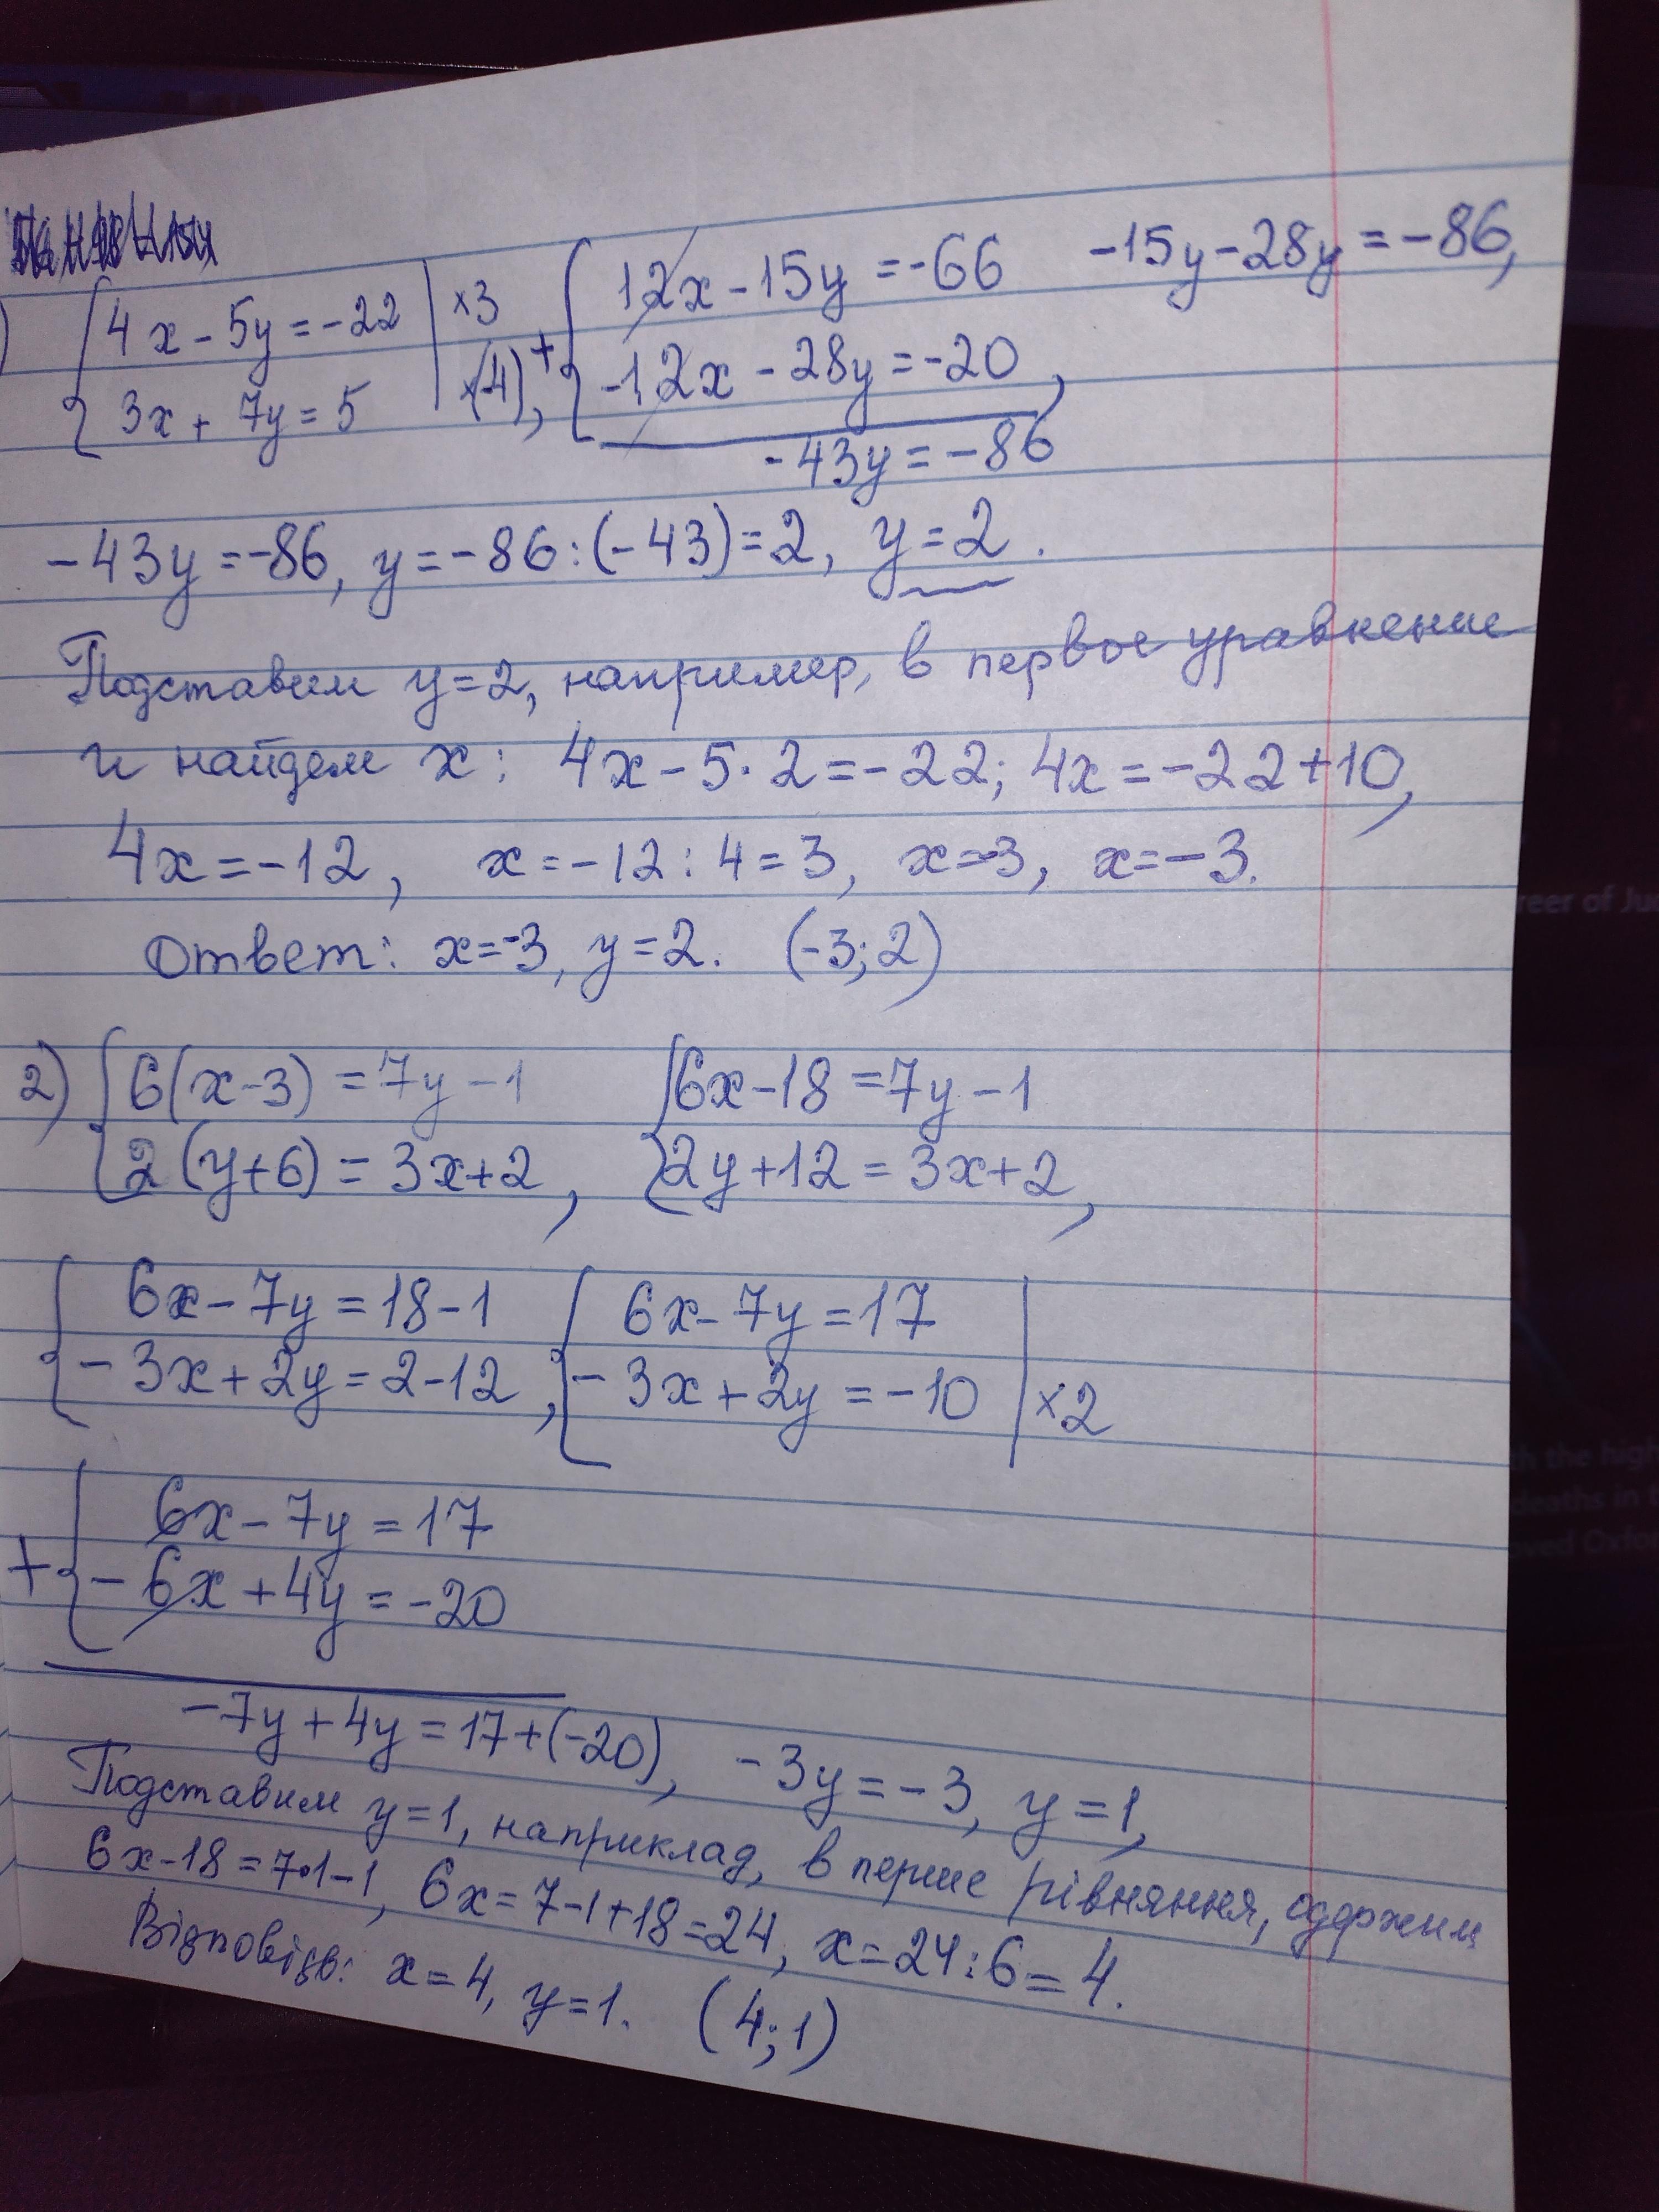 ) { 4x - 5y = -22 | ×3 + { 12x - 15y = -66 -15y - 28y = -86,
3x + 7y = 5 | ×(-4), -12x - 28y = -20,
-43y = -86
-43y = -86, y = -86 : (-43) = 2, y = 2.
Подставим y=2, например, в первое уравнение
и найдем x: 4x - 5·2 = -22; 4x = -22 + 10,
4x = -12, x = -12 : 4 = 3, x = -3, x = -3.
Ответ: x = -3, y = 2. (-3; 2)
2) { 6(x-3) = 7y - 1 { 6x - 18 = 7y - 1
2(y+6) = 3x + 2, 2y + 12 = 3x + 2,
{ 6x - 7y = 18 - 1 { 6x - 7y = 17
-3x + 2y = 2 - 12, -3x + 2y = -10 | ×2
+ { 6x - 7y = 17
-6x + 4y = -20
-7y + 4y = 17 + (-20), -3y = -3, y = 1,
Подставим y=1, наприклад, в перше рівняння, одержим
6x - 18 = 7·1 - 1, 6x = 7 - 1 + 18 = 24, x = 24 : 6 = 4.
Відповідь: x = 4, y = 1. (4; 1)
reer of Ju
th the high
deaths in t
oved Oxfo